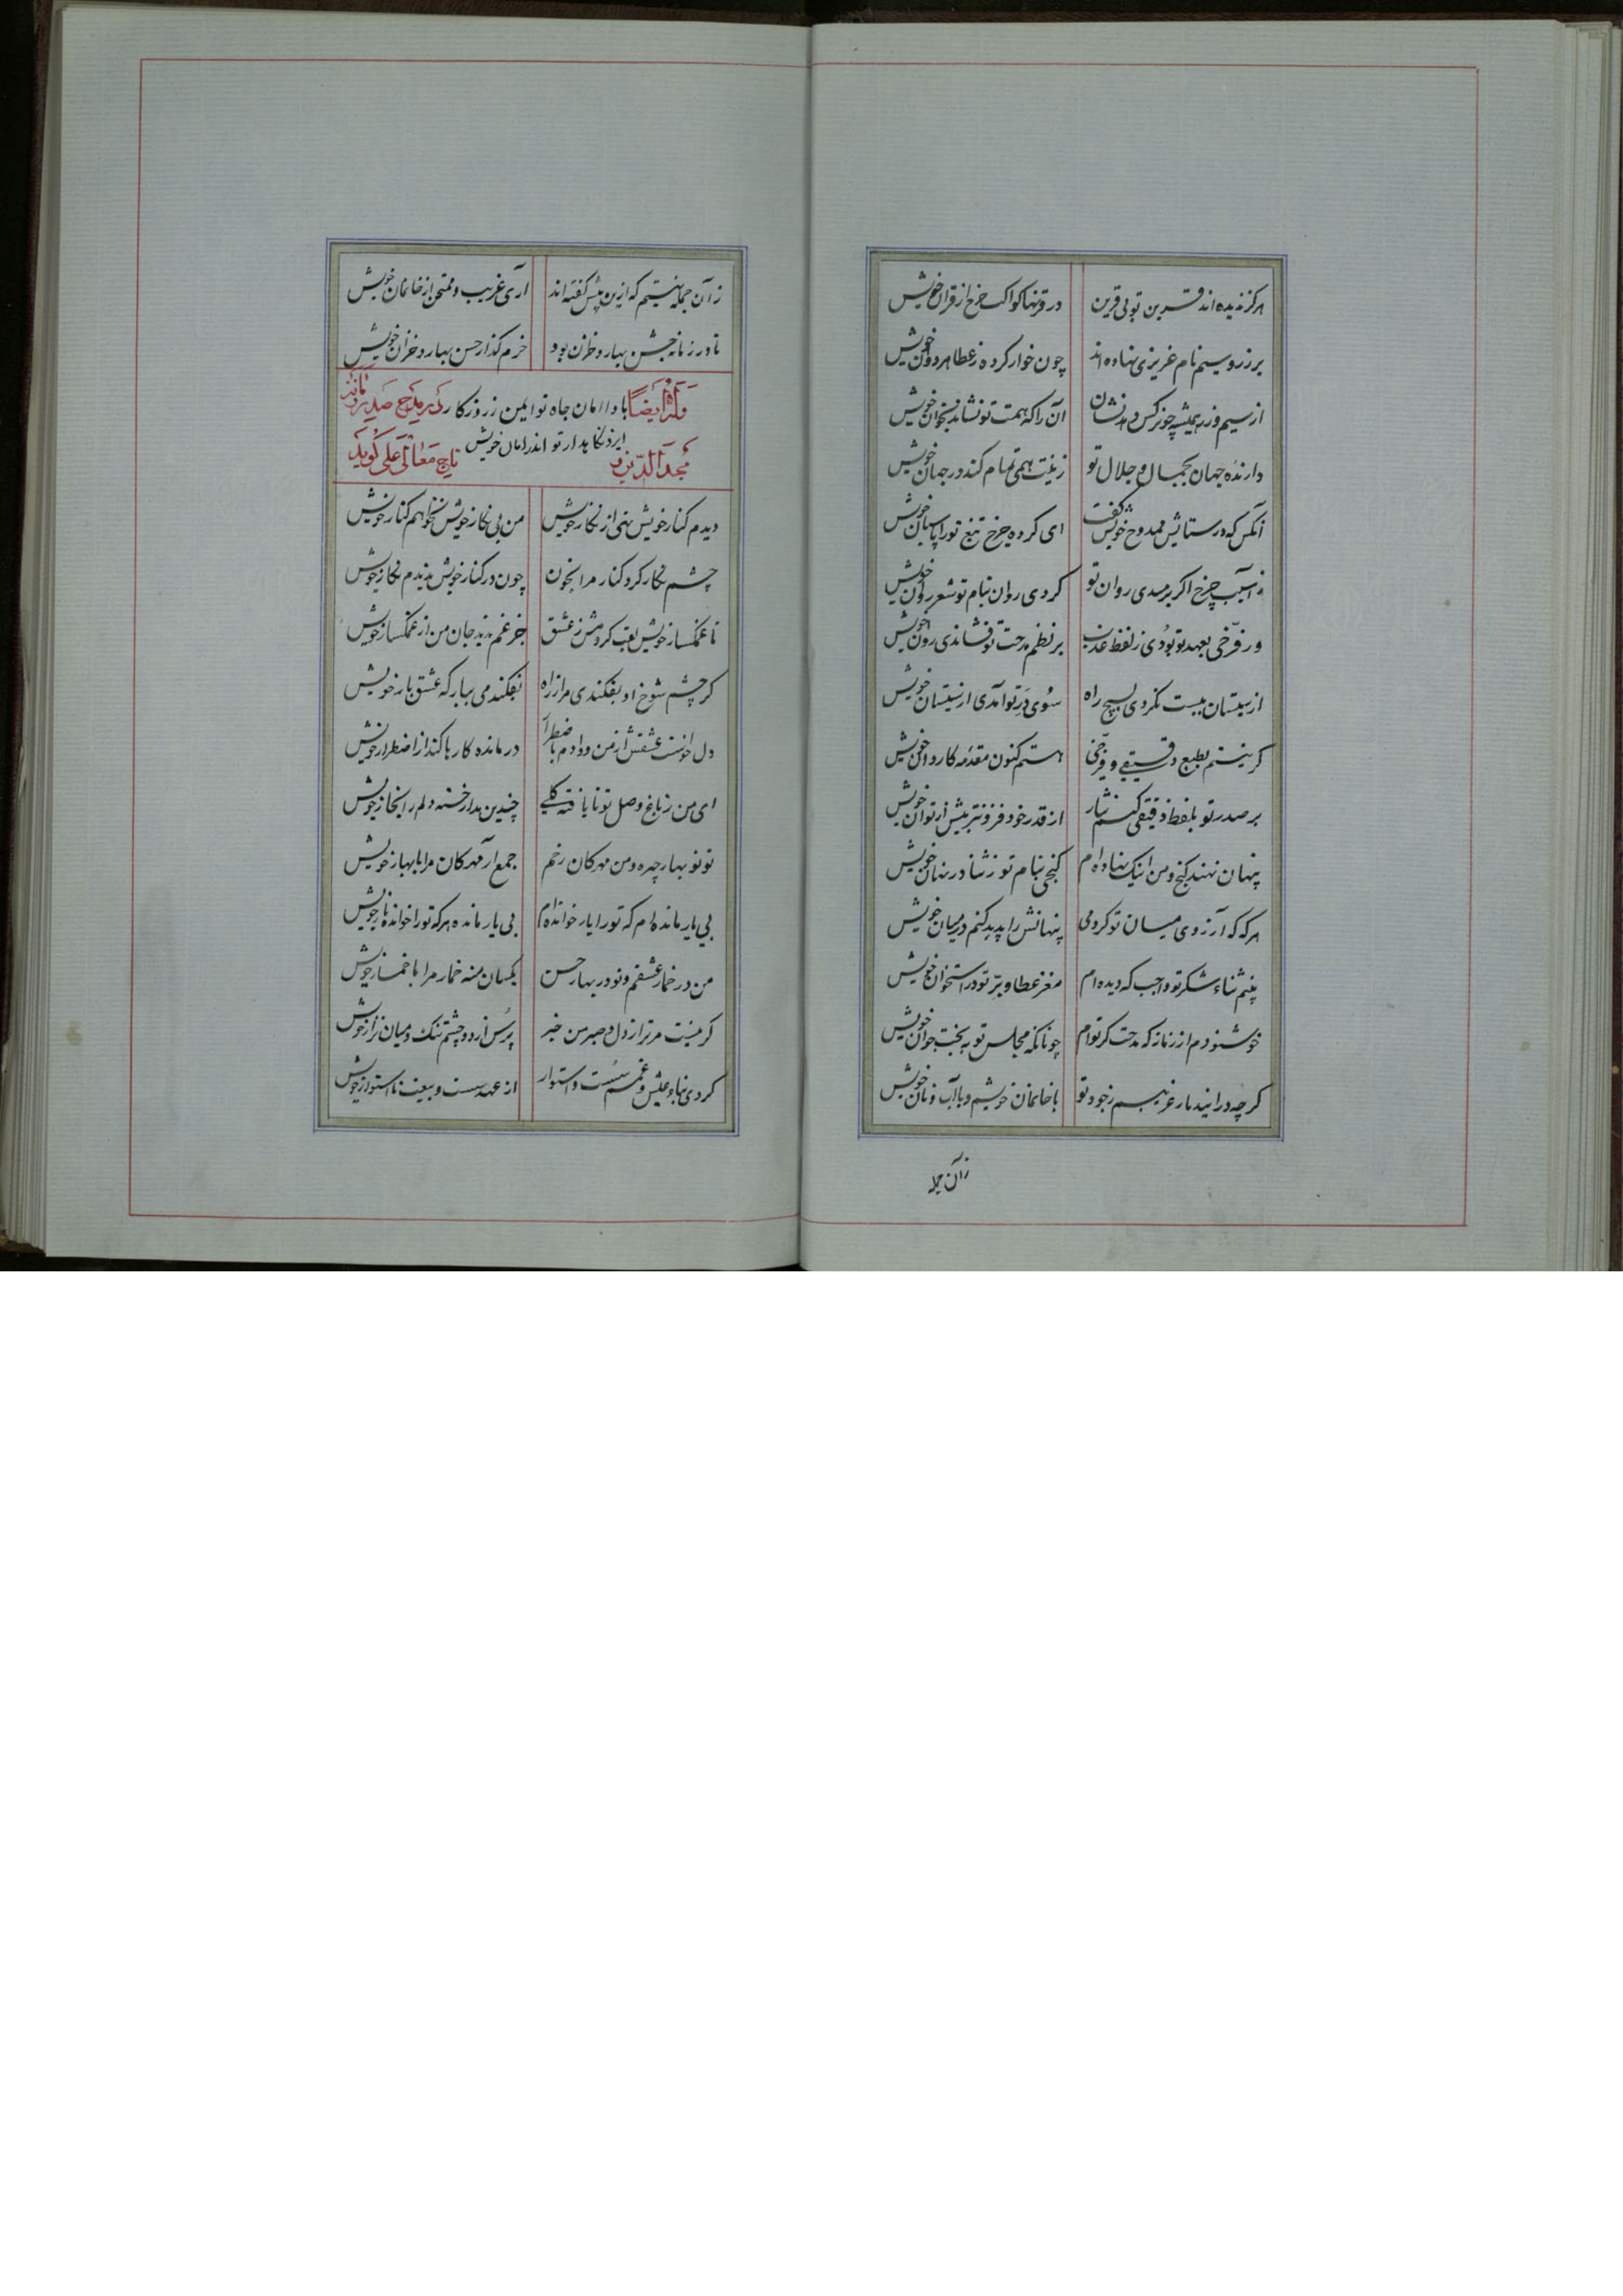 هرگز ندیده‌اند قرین تو بی قرین در قرنها کواکب چرخ از قران خویش
بر زر و سیم نام عزیزی نهاده‌اند چون خوار کرده ز عطا هردوان خویش
از سیم و زر همیشه چو نرگس دهد نشان آن را که همت تو نشاند بخوان خویش
دارنده جهان بجمال و جلال تو زینت همی تمام کند در جهان خویش
آنکس که در ستایش ممدوح خویش گفت ای کرده چرخ تیغ تو را پاسبان خویش
ز آسیب چرخ اگر برسدی روان تو کردی روان بنام تو شعر روان خویش
ور فرخی بعهد تو بودی ز لفظ عذب بر نظم مدحت تو فشاندی روان خویش
از سیستان ببست نکردی بسیچ راه سوی در تو آمدی از سیستان خویش
گر نیستم بطبع دقیقی و فرخی هستم کنون مقدمه کاروان خویش
بر صدر تو بلفظ دقیقی کنم نثار از قدر خود فزونتر بیش از توان خویش
پنهان نهند گنج و من اینک نهاده‌ام گنجی بنام تو ز ثنا در نهان خویش
هرگه که آرزوی میان تو کردمی پنهانش را پدید کنم در میان خویش
بینم ثناء شکر تو واجب که دیده‌ام مغز عطا و بر تو در استخوان خویش
خوشنودم از زمانه که مدحت گر توام چونانکه مجلس تو به بخت جوان خویش
گرچه در این دیار غریبم ز جود تو با خانمان خویشم و با آب و نان خویش
زآن جمله
زآن جمله نیستم که ازین پیش گفته‌اند آری غریب و ممتحن از خانمان خویش
تا در زمانه جشن بهار و خزان بود خرم گذار جشن بهار و خزان خویش
وله ایضا بادا امان جاه تو ایمن ز روزگار در مدح صدر
ایزد نگاهدار تو اندر امان خویش
مجدالدین تاج معالی علی گوید
دیدم کنار خویش تهی از نگار خویش من بی نگار خویش نخواهم کنار خویش
چشم نگار کرد کنار مرا بخون چون در کنار خویش ندیدم نگار خویش
تا غمگسار خویش لقب کردمش ز عشق جز غم ندید جان من از غمگسار خویش
گر چشم شوخ او بفکندی مرا ز راه نفکندمی ببارگه عشق بار خویش
دل خواست عشقش از من و دادم باضطرار درمانده کارها کند از اضطرار خویش
ای من ز باغ وصل تو نایافته گلی چندین مدار خسته دلم را بخار خویش
تو نوبهار چهره و من مهرگان رخم جمع آر مهرگان مرا با بهار خویش
بی یار مانده‌ام که تو را یار خوانده‌ام بی یار مانده هرکه تو را خوانده یار خویش
من در خمار عشقم و تو در بهار حسن یکسان منه خمار مرا با خمار خویش
گر نیست مر ترا ز دل و صبر من خبر پرس از دو چشم تنگ و میان نزار خویش
کردی بناء عیش و غمم سست و استوار از عهد سست و بیعت نااستوار خویش